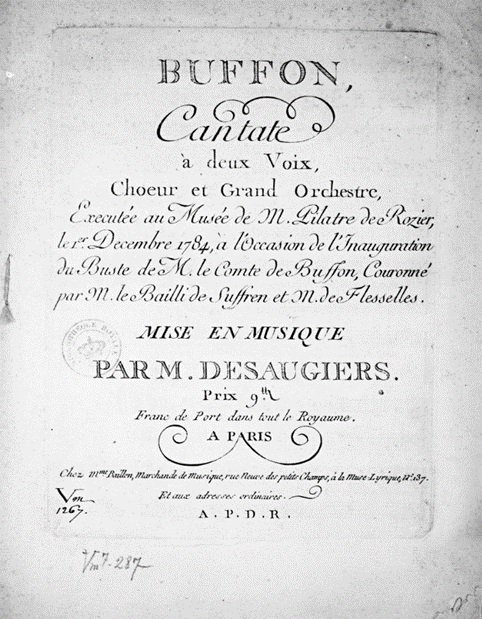 BUFFON,
Cantate
à deux Voix,
Choeur et Grand Orchestre,
Executée au Musée de M. Pilatre de Rozier,
le 1er. Decembre 1784, à l'Occasion de l'Inauguration
du Buste de M. le Comte de Buffon, Couronné
par M. le Bailli de Suffren et M. de Flesselles.
MISE EN MUSIQUE
PAR M. DESAUGIERS.
Prix 9tt
Franc de Port dans tout le Royaume.
A PARIS
Chez Mme Baillon, Marchande de Musique, rue Neuve des petits Champs, à la Muse Lyrique, No. 137.
Et aux adresses ordinaires.
Vm
1267.
A. P. D. R.
Vm7. 287